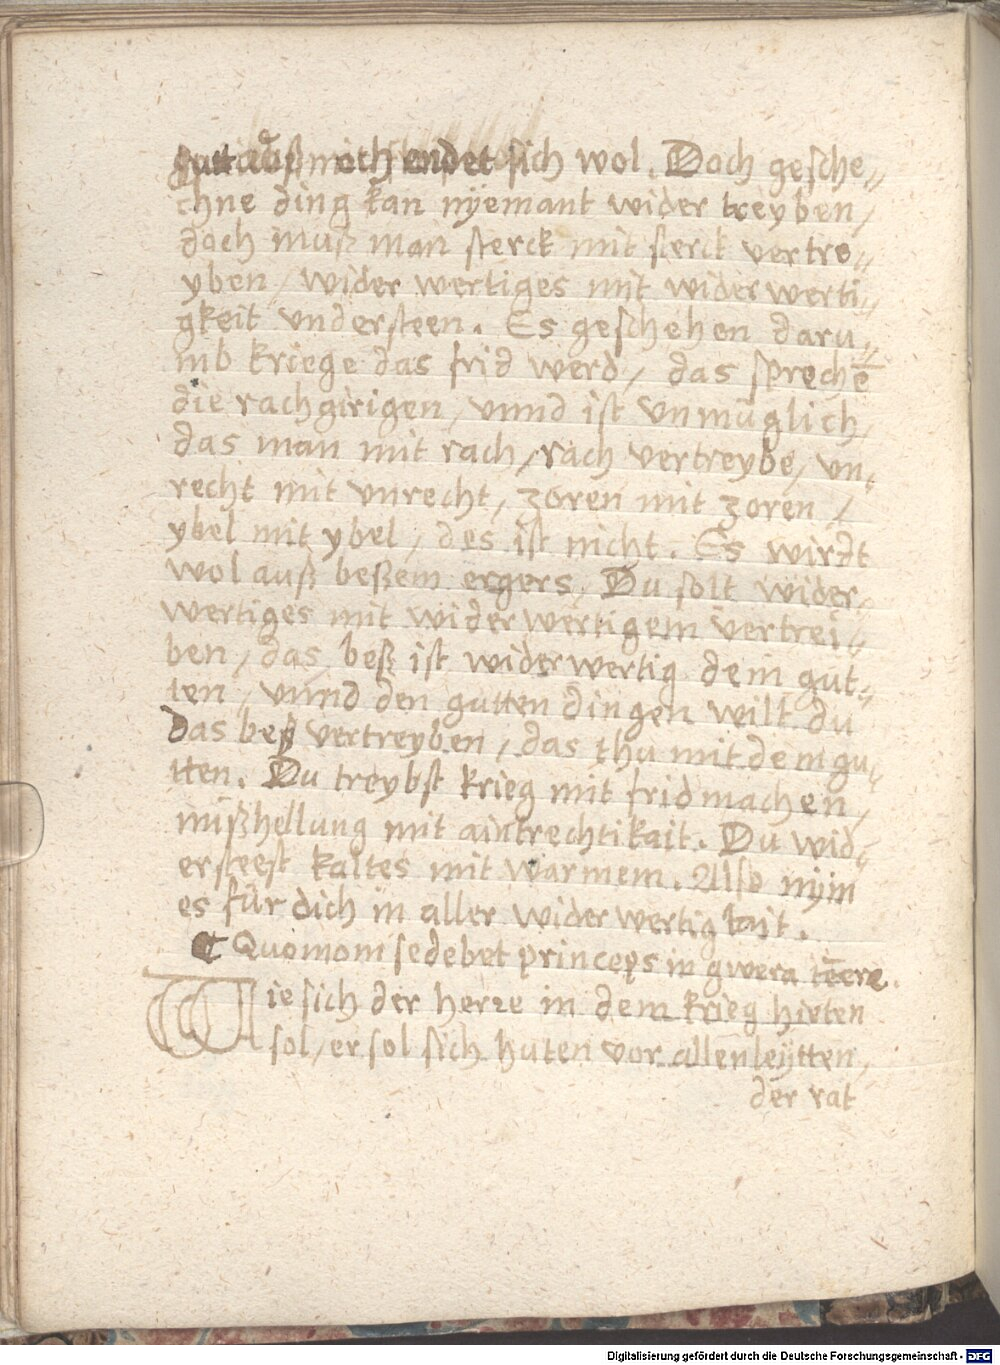 endet sich wol. Doch gesche„
chne ding kan nÿemant wider treyben /
doch muß man sterck mit sterck vertre„
yben / wider wertiges mit wider werti„
gkeit vndersteen. Es geschehen daru„
mb kriege das frid werd / das sprechē
die rachgirigen / vnnd ist vnmüglich /
das man mit rach / rach vertreybe / vn„
recht mit vnrecht / zoren mit zoren /
ybel mit ybel / des ist nicht. Es wirdt
wol auß beßem ergers. Du solt wider„
wertiges mit widerwertigem vertrei„
ben / das beß ist widerwertig dem gut„
ten / vnnd den gutten dingen wilt du
das beß vertreyben / das thu mit dem gu„
tten. Du treybst krieg mit fridmachen /
mißhellung mit aintrechtikait. Du wid„
ersteest kaltes mit warmem. Also nÿm
es für dich in aller widerwertigkait.
Quomom sedebet princeps in gwera tēere.
Wie sich der herre in dem krieg hieten
sol / er sol sich huten vor allen leÿtten /
der rat
Digitalisierung gefördert durch die Deutsche Forschungsgemeinschaft - DFG